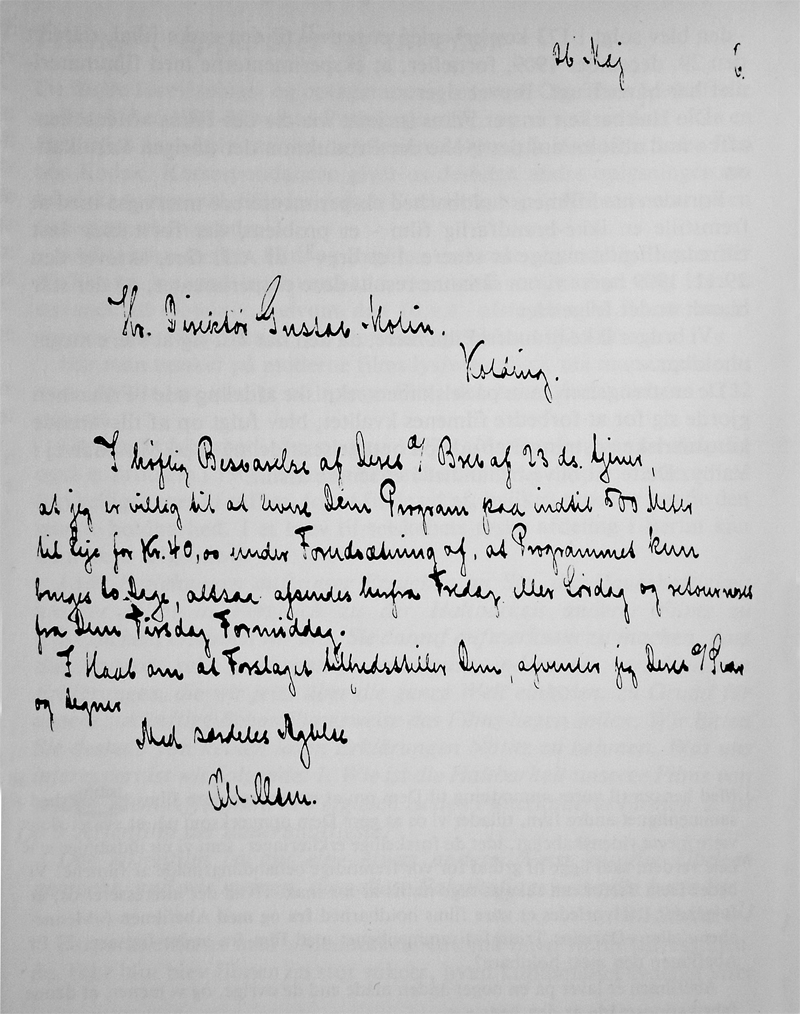 26 Maj 6.
Hr. Direktør Gustav Molin.
Kolding.
I høflig Besvarelse af Deres a/ Brev af 23 ds. tjener,
at jeg er villig til at levere Dem Program paa indtil 500 Meter
til Leje for Kr. 40,00 under Forudsætning af, at Programmet kun
bruges to Dage, altsaa afsendes herfra Fredag eller Lørdag og retourneres
fra Dem Tirsdag Formiddag.
I Haab om at Forslaget tilfredsstiller Dem, afventer jeg Deres a/ Svar
og tegner
Med særdeles Agtelse
Ole Olsen.